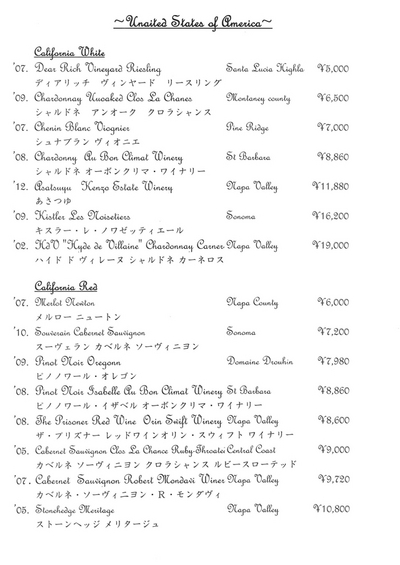 ~Unaited States of America~
California White
'07. Dear Rich Vineyard Riesling Santa Lucia Highla ¥5,000
ディアリッチ ヴィンヤード リースリング
'09. Chardonnay Unoaked Clos La Chanes Montaney county ¥6,500
シャルドネ アンオーク クロラシャンス
'07. Chenin Blanc Viognier Pine Ridge ¥7,000
シュナブラン ヴィオニエ
'08. Chardonny Au Bon Climat Winery St Barbara ¥8,860
シャルドネ オーボンクリマ・ワイナリー
'12. Asatsuyu Kenzo Estate Winery Napa Valley ¥11,880
あさつゆ
'09. Kistler Les Noisetiers Sonoma ¥16,200
キスラー・レ・ノワゼッティエール
'02. HdV "Hyde de Villaine" Chardonnay Carner Napa Valley ¥19,000
ハイド ド ヴィレーヌ シャルドネ カーネロス
California Red
'07. Merlot Newton Napa County ¥6,000
メルロー ニュートン
'10. Souverain Cabernet Sauvignon Sonoma ¥7,200
スーヴェラン カベルネ ソーヴィニヨン
'09. Pinot Noir Oregonn Domaine Drouhin ¥7,980
ピノノワール・オレゴン
'08. Pinot Noir Isabelle Au Bon Climat Winery St Barbara ¥8,860
ピノノワール・イザベル オーボンクリマ・ワイナリー
'08. The Prisoner Red Wine Orin Swift Winery Napa Valley ¥8,600
ザ・プリズナー レッドワインオリン・スウィフト ワイナリー
'05. Cabernet Sauvignon Clos La Chance Ruby-Throated Central Coast ¥9,000
カベルネ ソーヴィニヨン クロラシャンス ルビースローテッド
'07. Cabernet Sauvignon Robert Mondavi Winer Napa Valley ¥9,720
カベルネ・ソーヴィニヨン・R・モンダヴィ
'05. Stonehedge Meritage Napa Valley ¥10,800
ストーンヘッジ メリタージュ